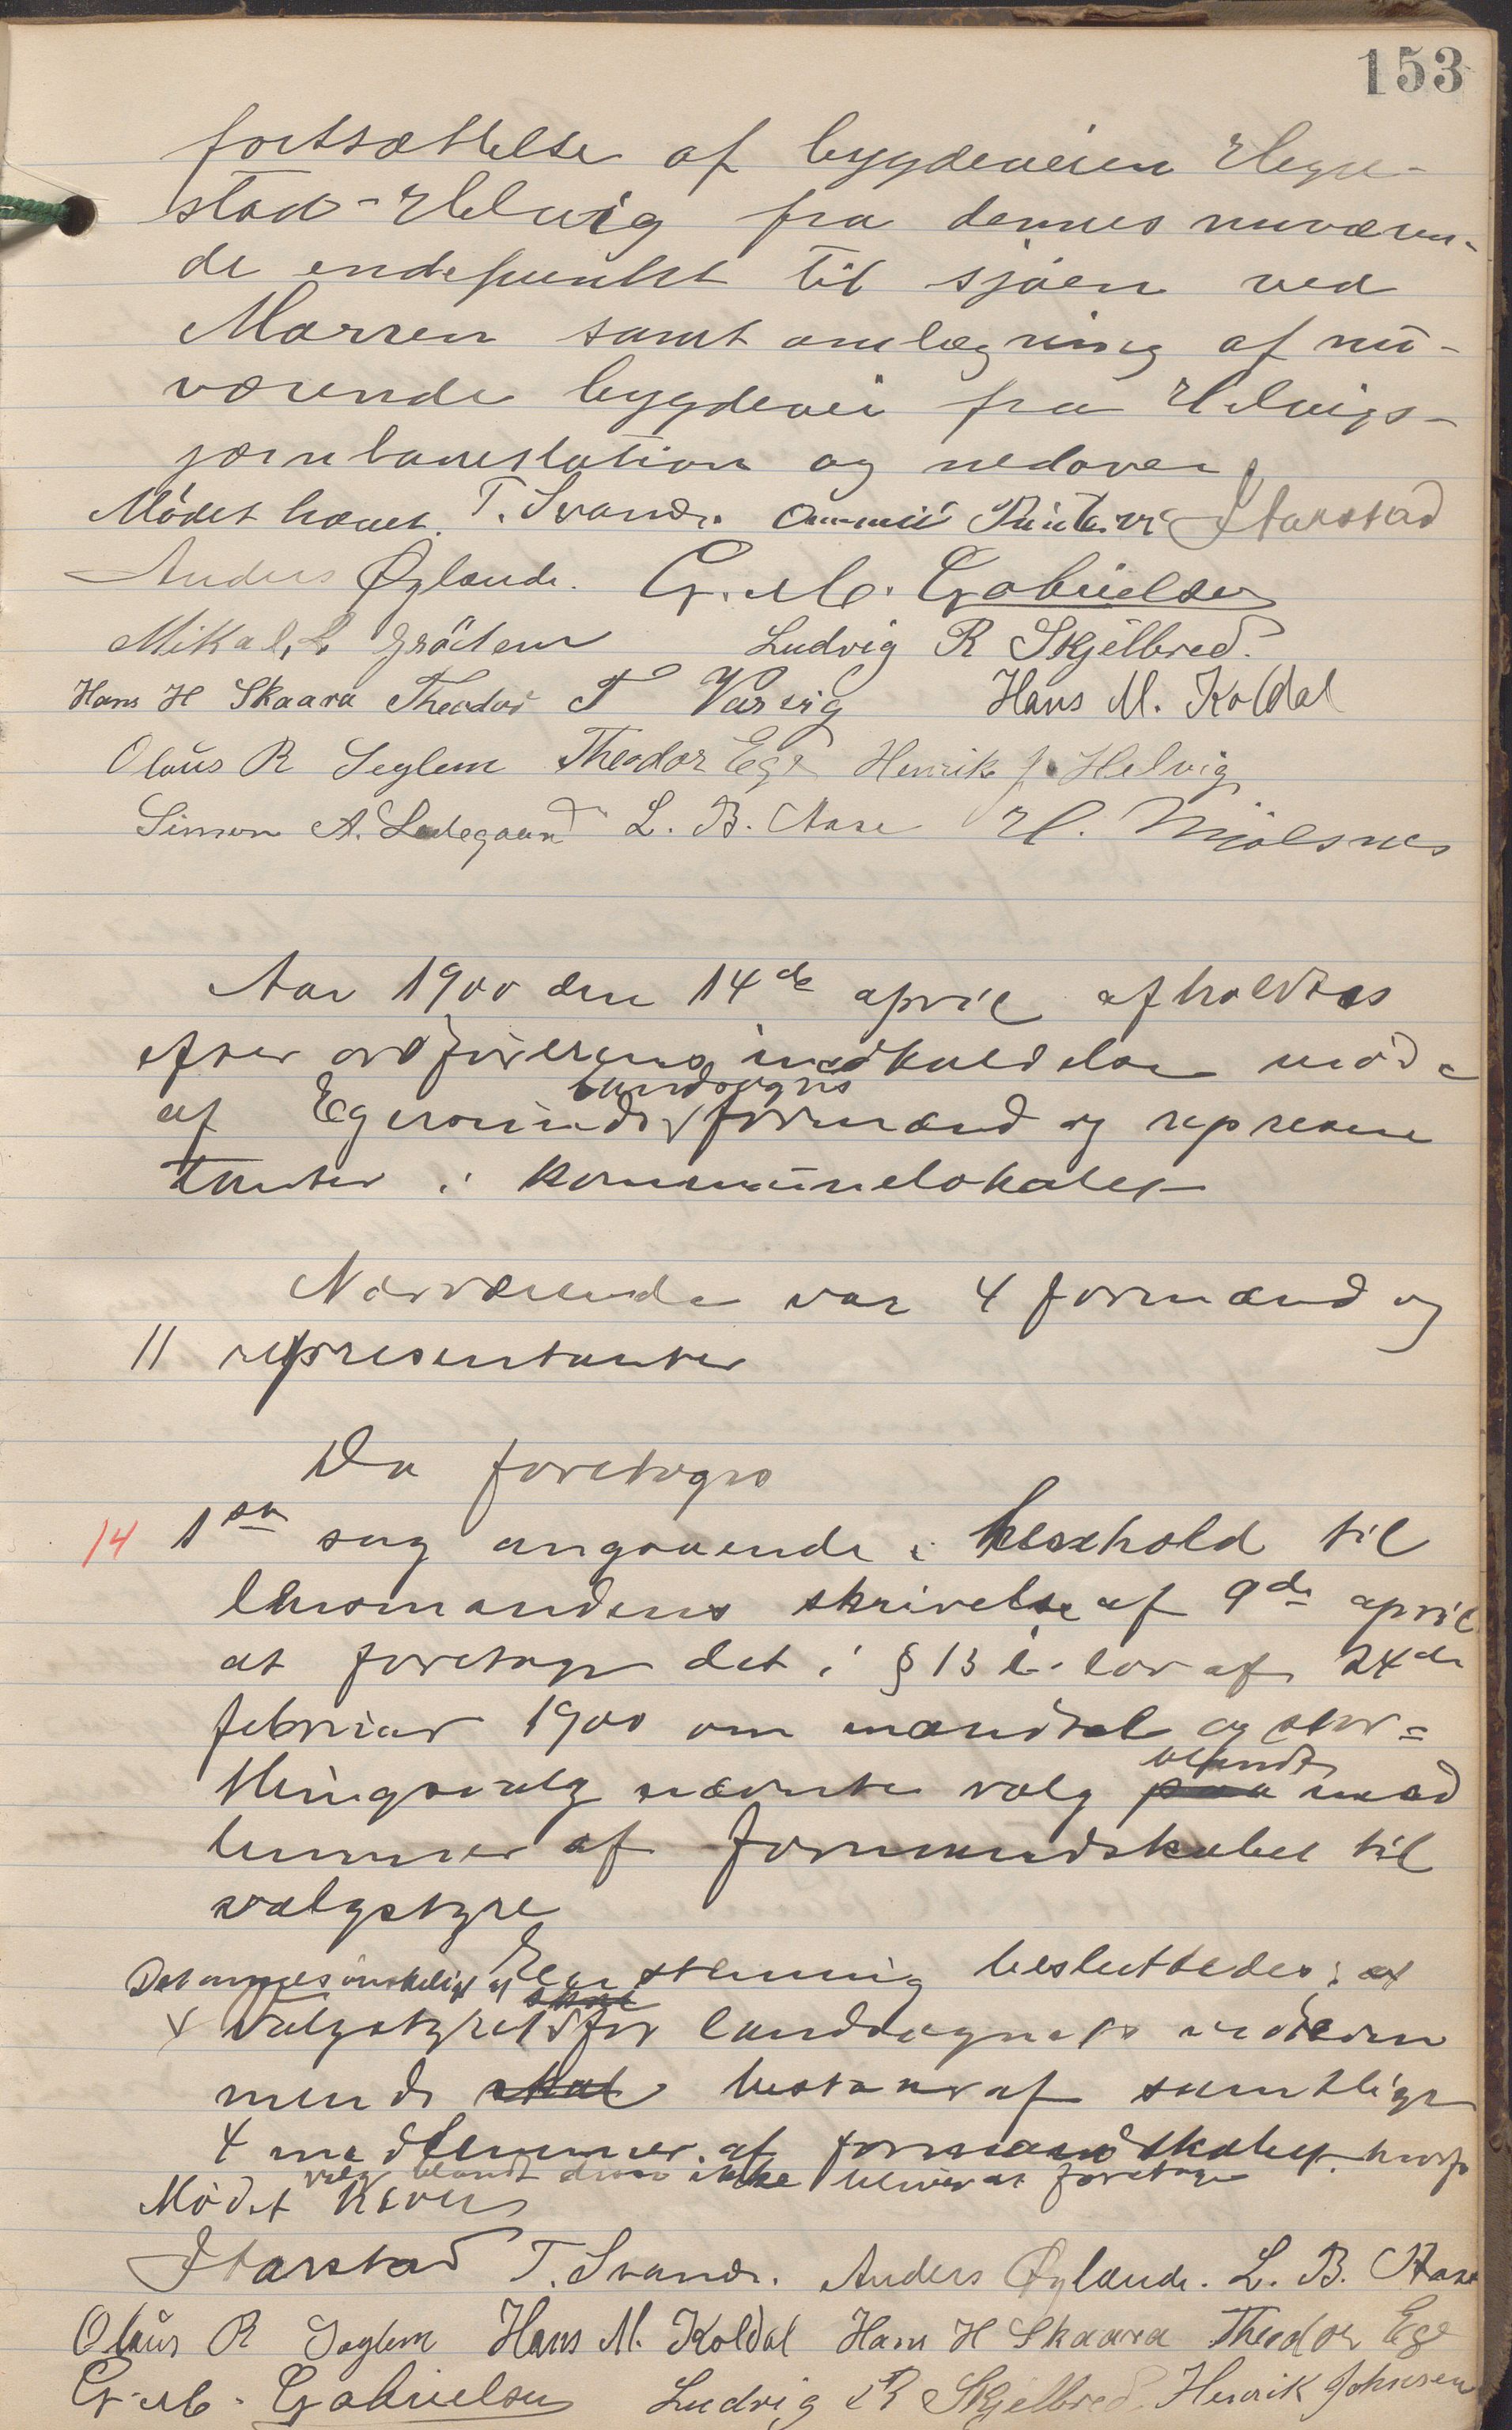 153
fortsættelse af bygdeveien Hegre-
stad-Helvig fra dennes nuværen-
de endepunkt til sjøen ved
Marren samt omlægning af nu-
værende bygdevei fra Helvigs-
jernbanestation og nedover
Mödet hævet. T. Svanæs Starstad
Anders Øglænde. G. M. Gabrielsen
Mikal. L. Gröitem Ludvig R Skjelbred.
Hans H Skaara Theodor T Varvig Hans M. Koldal
Olaus R Seglem Theodor Ege Henrik J. Helvig
Simon A. Ladegaard L. B. Aase H. Mjølsnes
Aar 1900 den 14de april afholdtes
efter ordförerens indkaldelse möde
landsogns
af Egersunds formænd og represen
tanter i kommunelokalet
Nærværende var 4 formænd og
11 representanter
Da foretoges
14 1ste sag angaaende i henhold til
lensmandens skrivelse af 9de april
at foretage det i § 13 i lov af 24de
februar 1900 om mandtal og stor=
blandt
thingsvalg nævnte valg paa med
lemmer af formandskabet til
valgstyre
Det ansees önskeligt at Een stemmig besluttedes: at
skal
valgstyret for landsognets vedkom
mende skal bestaar af samtlige
4 medlemmer af formandskabet hvorfor
valg blandt disse ikke bliver at foretage
Mödet hævet
Starstad T. Svanæs. Anders Øglænde. L. B. Aase
Olaus R Seglem Hans M. Koldal Hans H Skaara Theodor Ege
G. M. Gabrielsen Ludvig R Skjelbred Henrik Johnsen